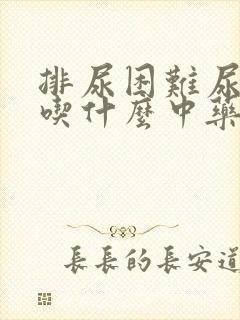 排尿困難尿
喫什麼中藥
長長的長安道